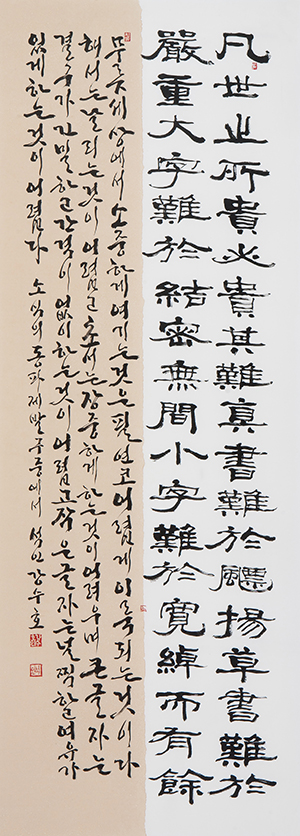 凡世之所貴必貴其難真書難於飄揚草書難於
嚴重大字難於結密無間小字難於寬綽而有餘
무릇 세상에서 소중하게 여기는 것은 필연코 어렵게 이룩되는 것이다
해서는 날리는 것이 어렵고 초서는 장중하게 하는 것이 어려우며 큰 글자는
결구가 긴밀하고 간격이 없이 하는 것이 어렵고 작은 글자는 널찍한 여유가
있게 하는 것이 어렵다 소식의 동파제발 구중에서 강수호